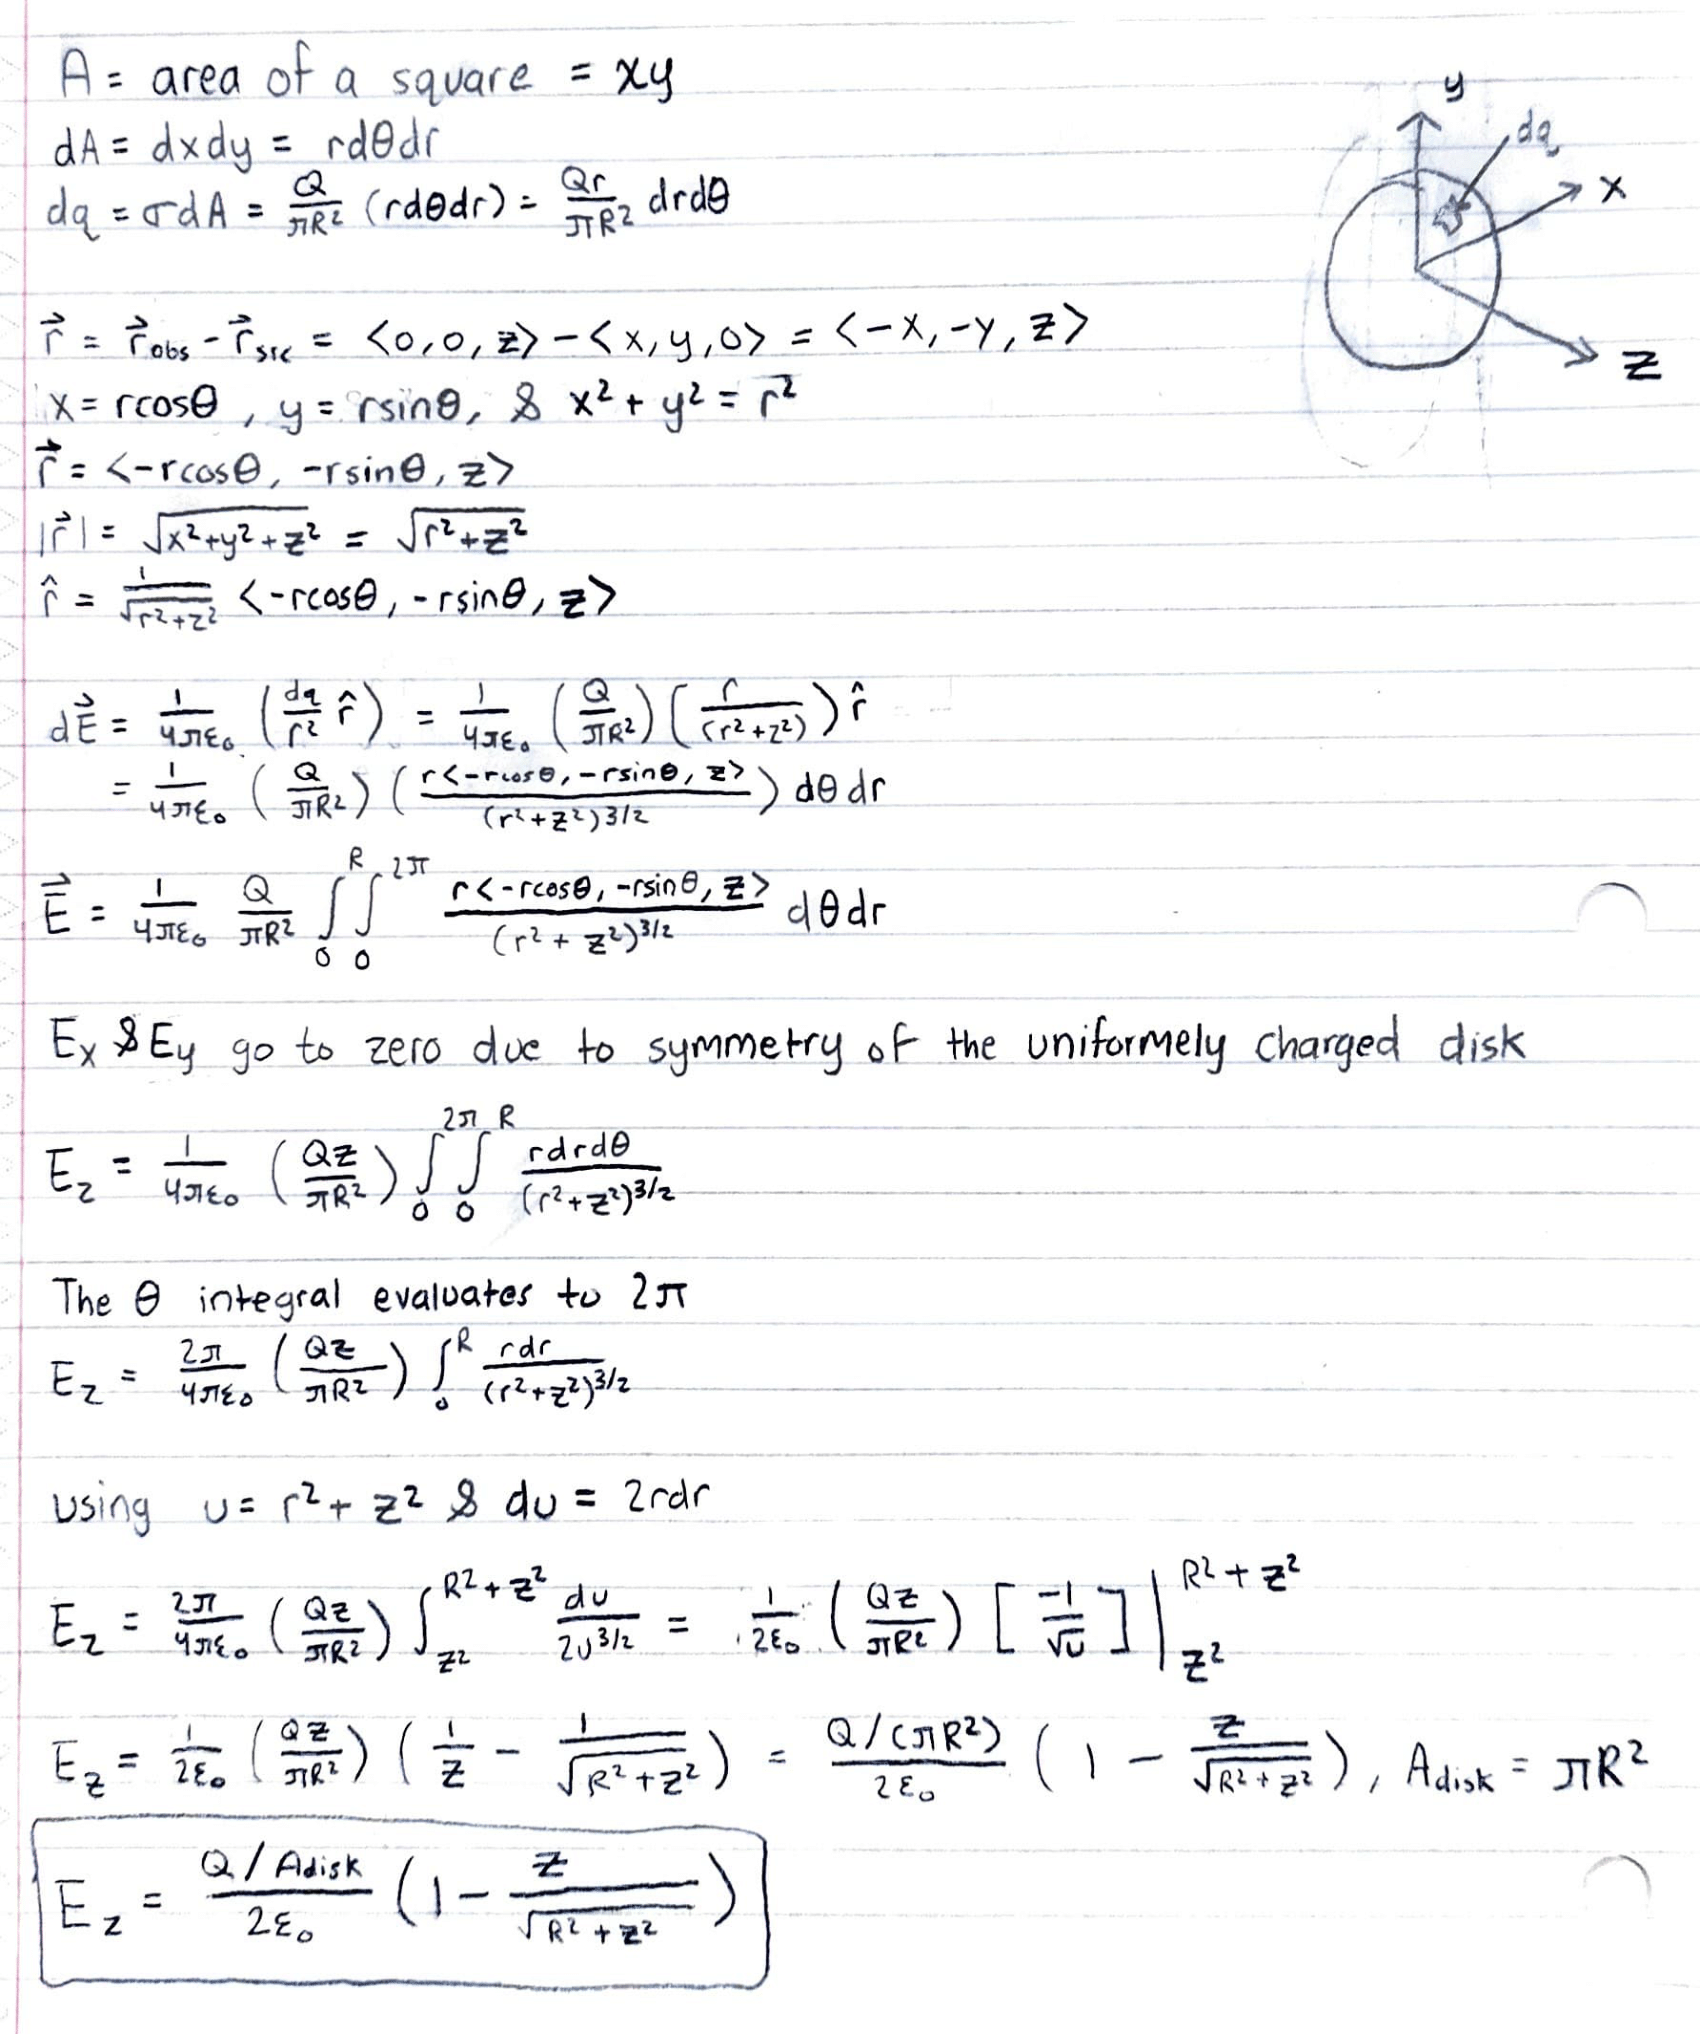 A = area of a square = xy
dA = dxdy = rdθdr
dq = σdA = Q/πR² (rdθdr) = Qr/πR² drdθ
y
dq
x
z
r⃗ = r⃗obs - r⃗src = <0,0,z> - <x,y,0> = <-x,-y,z>
x = rcosθ, y = rsinθ, & x² + y² = r²
r⃗ = <-rcosθ, -rsinθ, z>
|r⃗| = √(x²+y²+z²) = √(r²+z²)
r̂ = 1/√(r²+z²) <-rcosθ, -rsinθ, z>
dE⃗ = 1/4πε₀ (dq/r² r̂) = 1/4πε₀ (Q/πR²) (r/(r²+z²)) r̂
= 1/4πε₀ (Q/πR²) (r<-rcosθ, -rsinθ, z>/(r²+z²)^3/2) dθdr
E⃗ = 1/4πε₀ Q/πR² ∫₀^R ∫₀^2π r<-rcosθ, -rsinθ, z>/(r²+z²)^3/2 dθdr
Ex & Ey go to zero due to symmetry of the uniformely charged disk
Ez = 1/4πε₀ (Qz/πR²) ∫₀^2π ∫₀^R rdrdθ/(r²+z²)^3/2
The θ integral evaluates to 2π
Ez = 2π/4πε₀ (Qz/πR²) ∫₀^R rdr/(r²+z²)^3/2
using u = r² + z² & du = 2rdr
Ez = 2π/4πε₀ (Qz/πR²) ∫_z²^R²+z² du/2u^3/2 = 1/2ε₀ (Qz/πR²) [-1/√u] |_z²^R²+z²
Ez = 1/2ε₀ (Qz/πR²) (1/z - 1/√(R²+z²)) = Q/(πR²)/2ε₀ (1 - z/√(R²+z²)), Adisk = πR²
Ez = Q/Adisk/2ε₀ (1 - z/√(R²+z²))